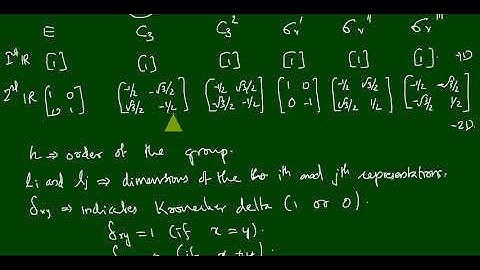 E C₃ C₃² σᵥ' σᵥ'' σᵥ'''
Iˢᵗ IR [1] [1] [1] [1] [1] [1] -1D
2ⁿᵈ IR [1 0; 0 1] [-1/2 -√3/2; √3/2 -1/2] [-1/2 √3/2; -√3/2 -1/2] [1 0; 0 -1] [-1/2 √3/2; √3/2 1/2] [-1/2 -√3/2; -√3/2 1/2]
-2D.
h ⇒ order of the group.
li and lj ⇒ dimensions of the iᵗʰ and jᵗʰ representations.
δxy ⇒ indicates Kronecker delta (1 or 0).
δxy = 1 (if x = y).
(if x ≠ y).